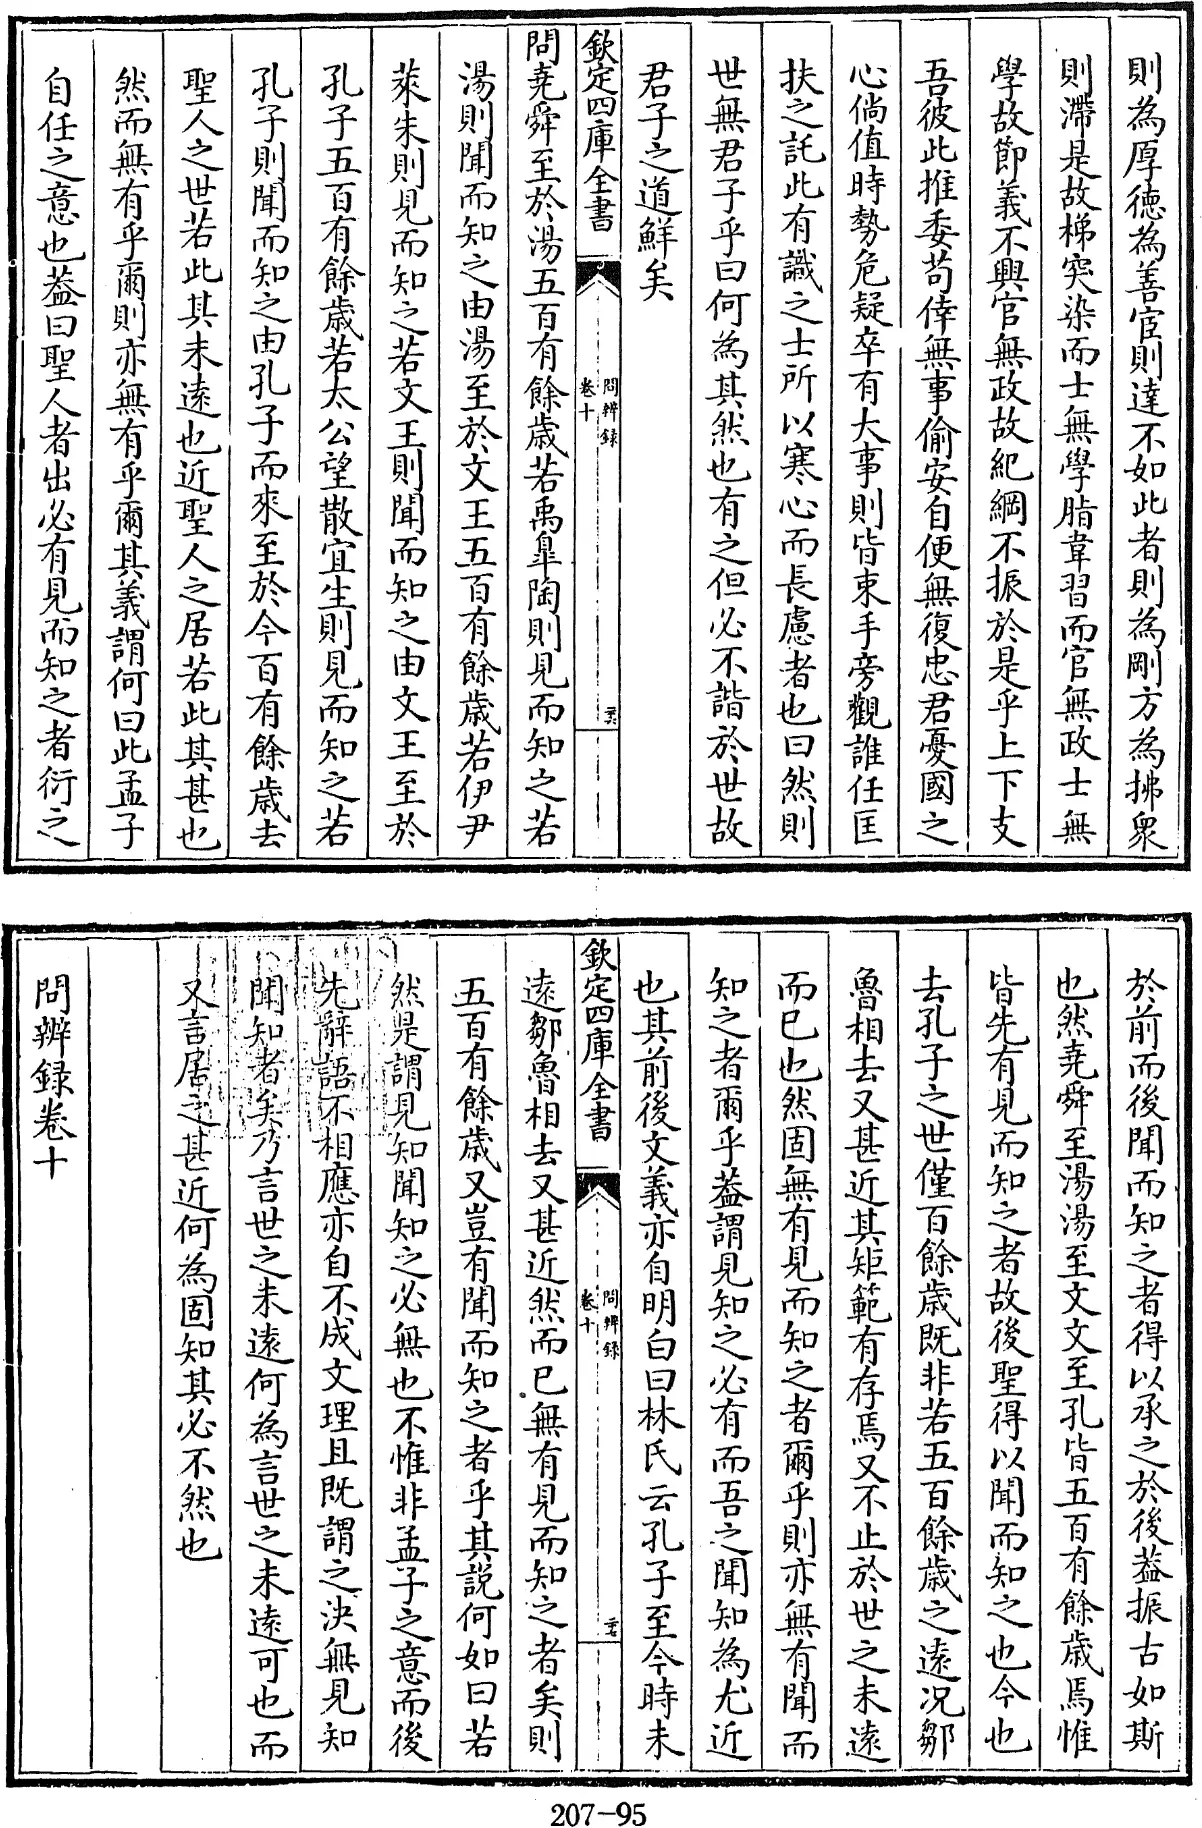 則為厚德為善宦則達不如此者則為剛方為拂衆
則滯是故梯突染而士無學脂韋習而官無政士無
學故節義不興官無政故紀綱不振於是乎上下支
吾彼此推委苟倖無事偷安自便無復忠君憂國之
心倘值時勢危疑卒有大事則皆束手旁觀誰任匡
扶之託此有識之士所以寒心而長慮者也曰然則
世無君子乎曰何為其然也有之但必不諧於世故
君子之道鮮矣
欽定四庫全書
問辨録
卷十
問堯舜至於湯五百有餘歲若禹臯陶則見而知之若
湯則聞而知之由湯至於文王五百有餘歲若伊尹
萊朱則見而知之若文王則聞而知之由文王至於
孔子五百有餘歲若太公望散宜生則見而知之若
孔子則聞而知之由孔子而來至於今百有餘歲去
聖人之世若此其未遠也近聖人之居若此其甚也
然而無有乎爾則亦無有乎爾其義謂何曰此孟子
自任之意也葢曰聖人者出必有見而知之者衍之
於前而後聞而知之者得以承之於後葢振古如斯
也然堯舜至湯湯至文文至孔皆五百有餘歲焉惟
皆先有見而知之者故後聖得以聞而知之也今也
去孔子之世僅百餘歲既非若五百餘歲之遠况鄒
魯相去又甚近其矩範有存焉又不止於世之未遠
而已也然固無有見而知之者爾乎則亦無有聞而
知之者爾乎葢謂見知之必有而吾之聞知為尤近
也其前後文義亦自明白曰林氏云孔子至今時未
欽定四庫全書
問辨録
卷十
遠鄒魯相去又甚近然而已無有見而知之者矣則
五百有餘歲又豈有聞而知之者乎其說何如曰若
然是謂見知聞知之必無也不惟非孟子之意而後
先辭語不相應亦自不成文理且既謂之決無見知
聞知者矣乃言世之未遠何為言世之未遠可也而
又言居之甚近何為固知其必不然也
問辨録卷十
207-95